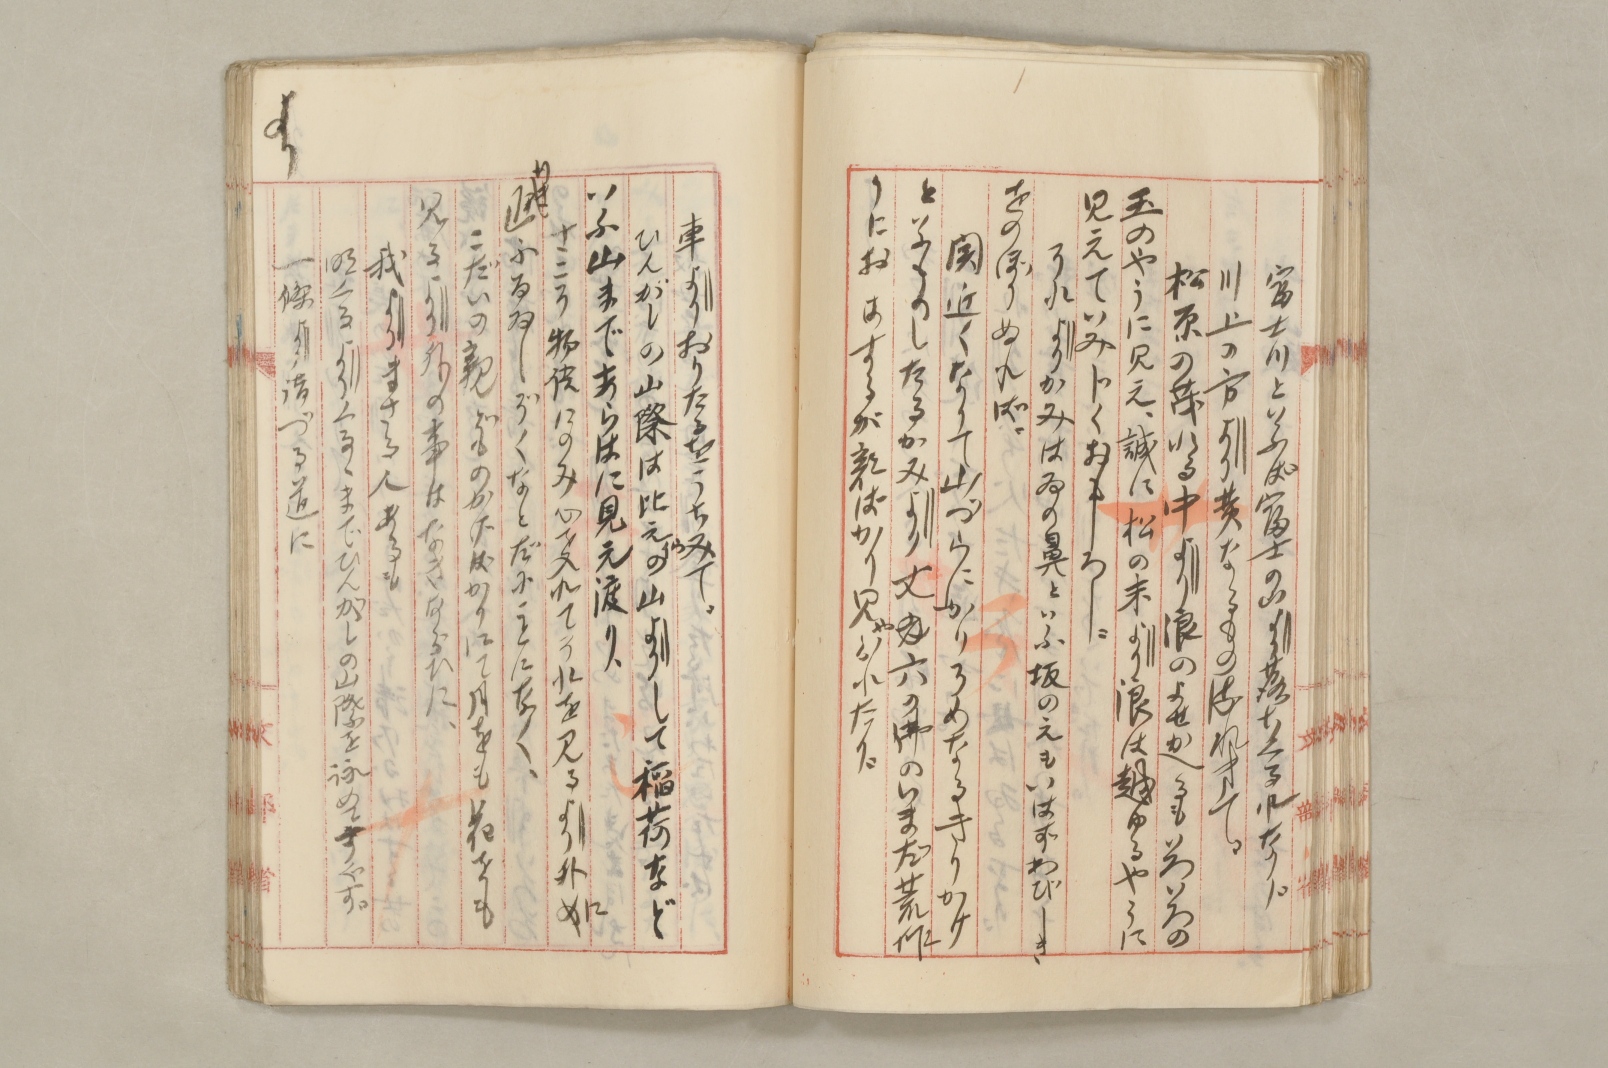 富士川といふは富士の山より落たる水なり。
川上の方より黄なるもの流れ来て、
松原の茂れる中より浪のよせかへるもいろいろの
玉のやうに見え、誠に松の末より浪は越ゆるやうに
見えていみじくおもしろし。
それよりかみはゐの鼻といふ坂のえもいはずわびしき
をのぼりぬれば、
関近くなりて山づらにかりそめなるきりかけ
といふものしたるかみより丈六の仏のいまだ荒作
りにおはするが顔ばかり見やられたり。
車よりおりたるをうちみて、
ひんがしの山際は比えの山よりして稲荷など
いふ山まであらはに見え渡り、
ふるめしがくなどだにことになく、
こだいの親どものかげばかりにて月をも花をも
見るより外の事はなきならひに、
我よりまさる人あるも
明くるより くるゝまでひんがしの山際を詠めてすぐす。
一條より詣づる道に
より